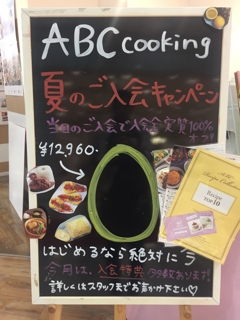 ABC cooking
夏のご入会キャンペーン
当日のご入会で入会金実質100%
オフ!
¥12,960-
ABC
Recipe Collection
Recipe
TOP 10
はじめるなら絶対に"今"
今月は、入会特典多数あります!
詳しくはスタッフまでお声かけ下さい♡